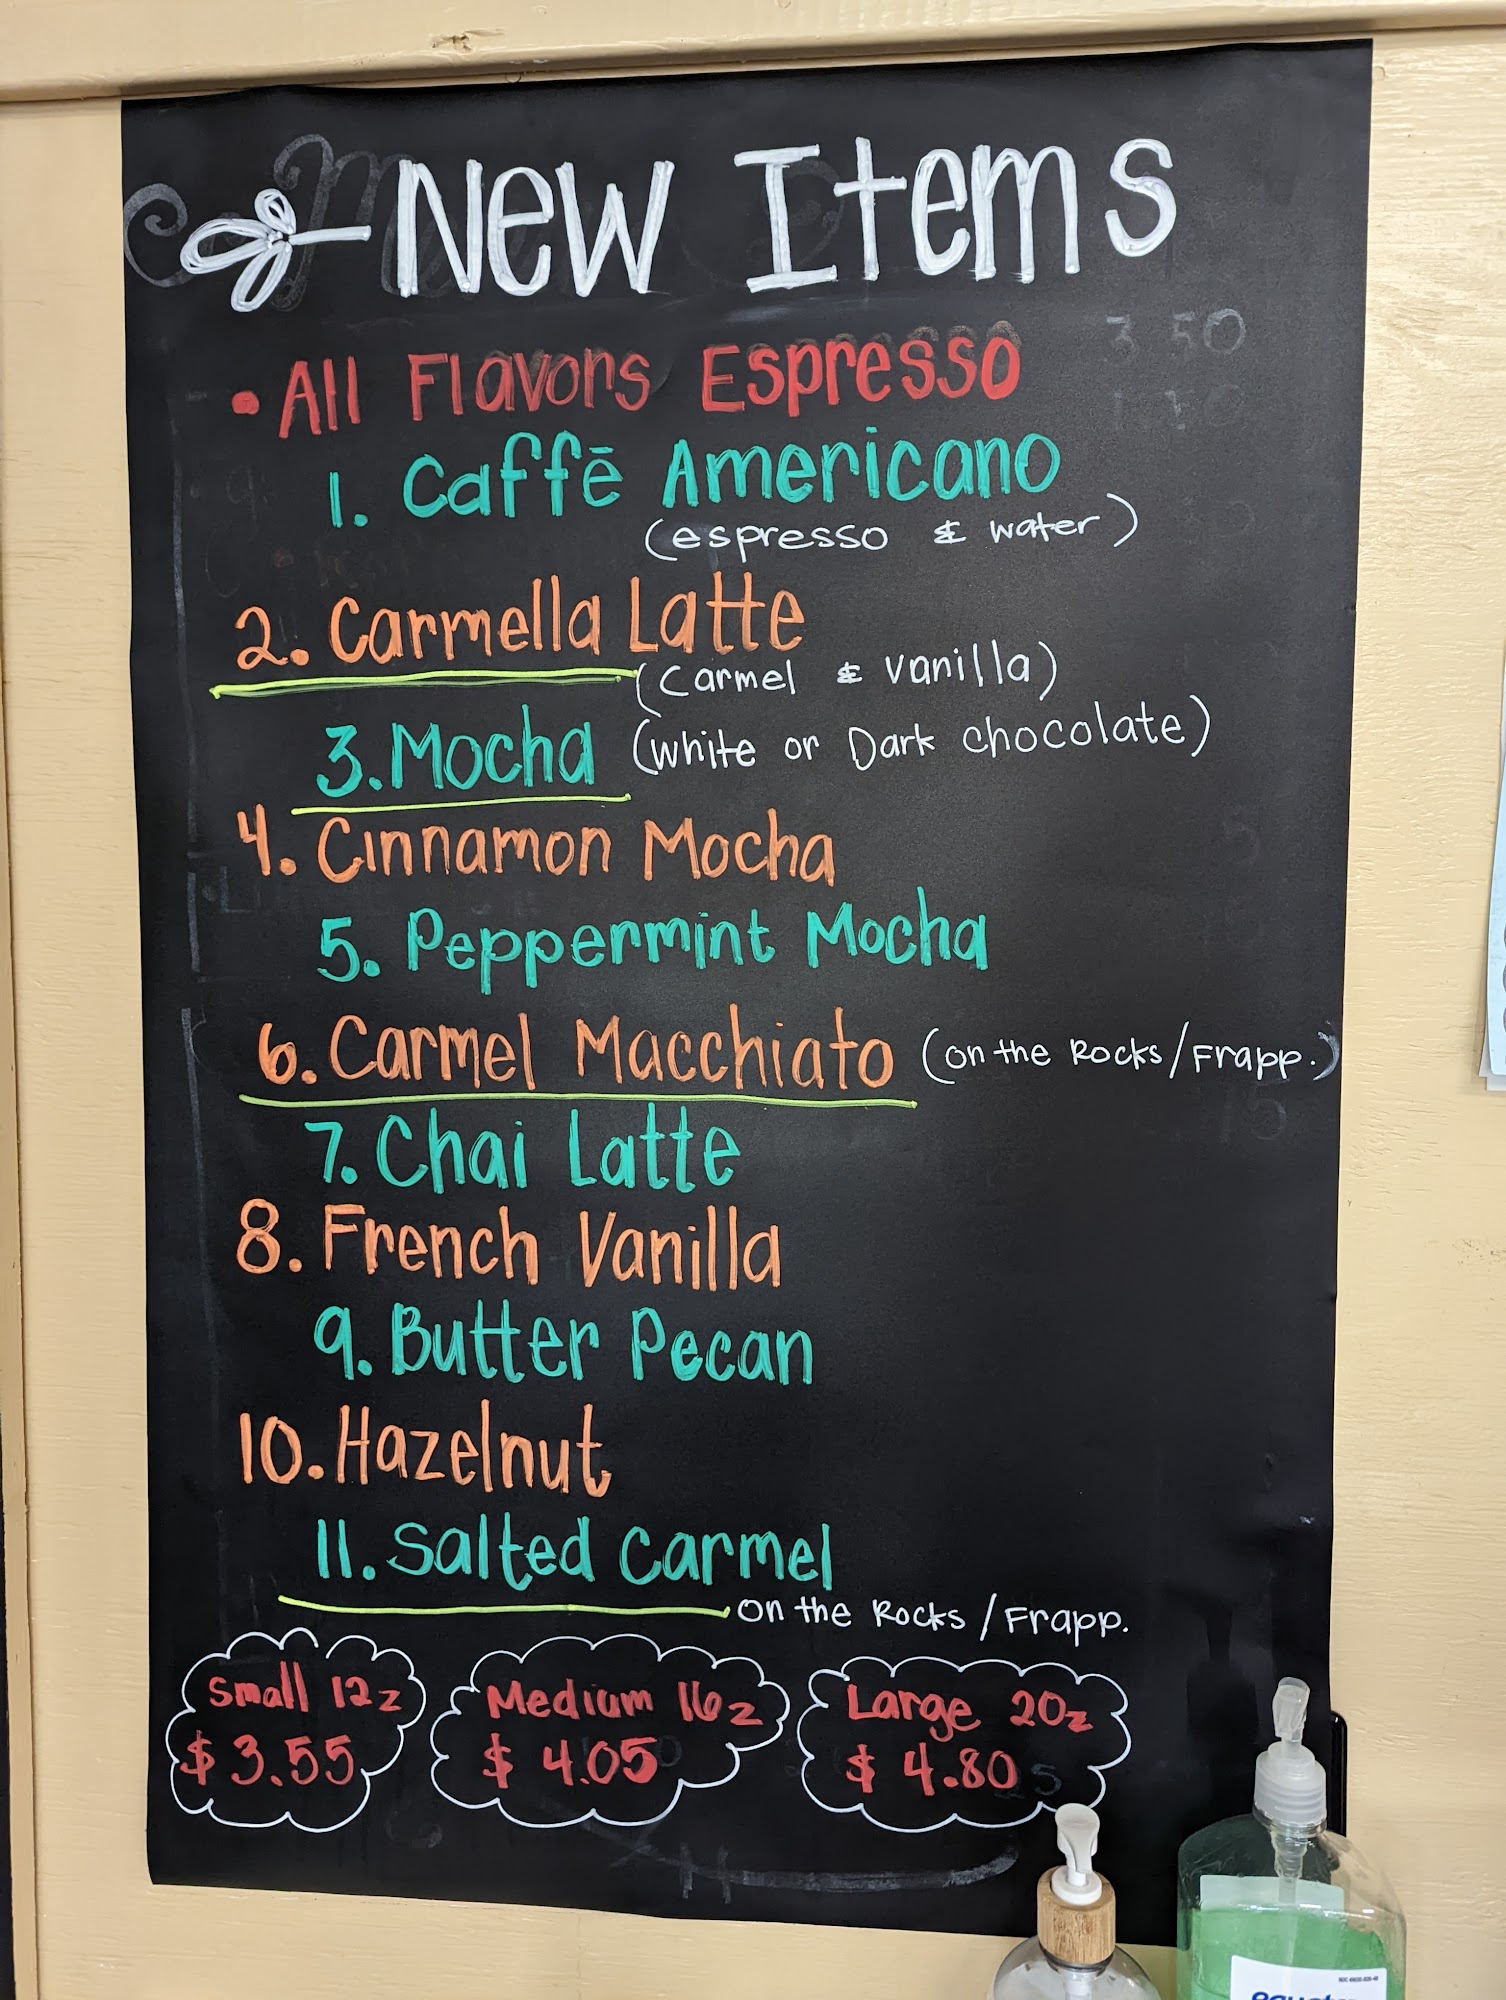 New Items
• All Flavors Espresso
1. Caffē Americano
(espresso & water)
2. Carmella Latte
(Carmel & Vanilla)
3. Mocha (White or Dark chocolate)
4. Cinnamon Mocha
5. Peppermint Mocha
6. Carmel Macchiato (on the Rocks/Frapp.)
7. Chai Latte
8. French Vanilla
9. Butter Pecan
10. Hazelnut
11. Salted Carmel
on the Rocks/Frapp.
Small 12z
$3.55
Medium 16z
$4.05
Large 20z
$4.80